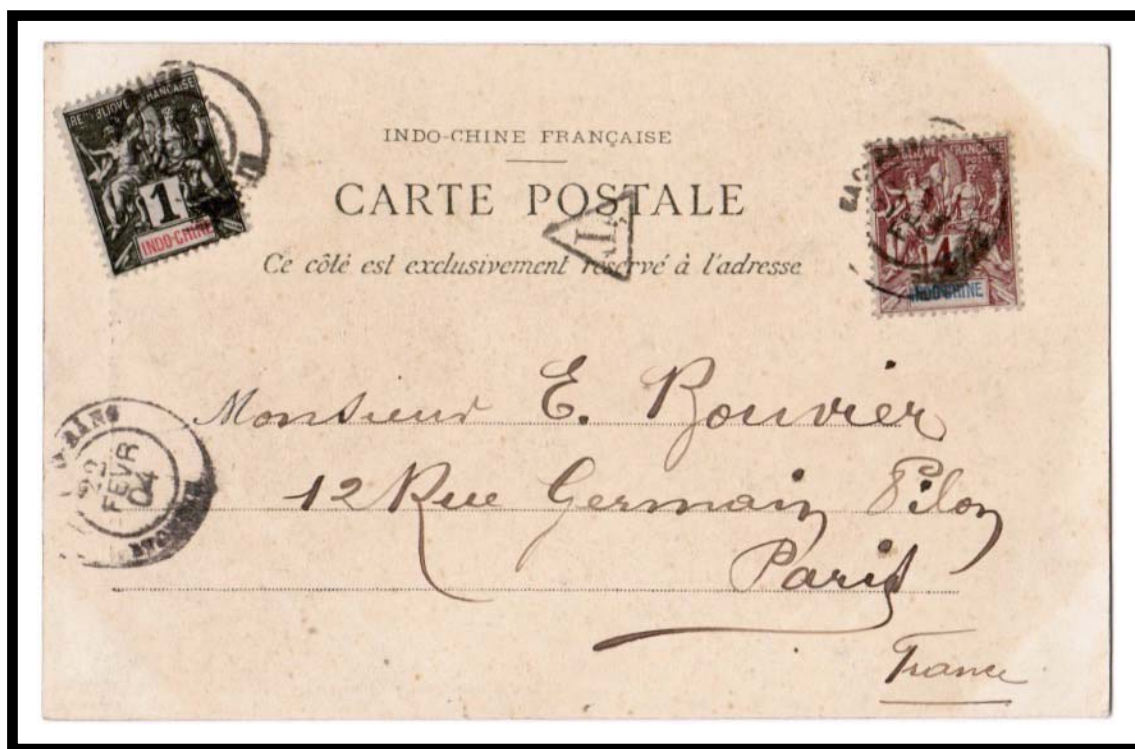 REPUBLIQUE FRANÇAISE
1
INDO-CHINE
INDO-CHINE FRANÇAISE
CARTE POSTALE
T
Ce côté est exclusivement réservé à l'adresse
REPUBLIQUE FRANÇAISE
POSTES
4
INDO-CHINE
Monsieur E. Bouvier
12 Rue Germain Pilon
Paris
France
22
FEVR
04